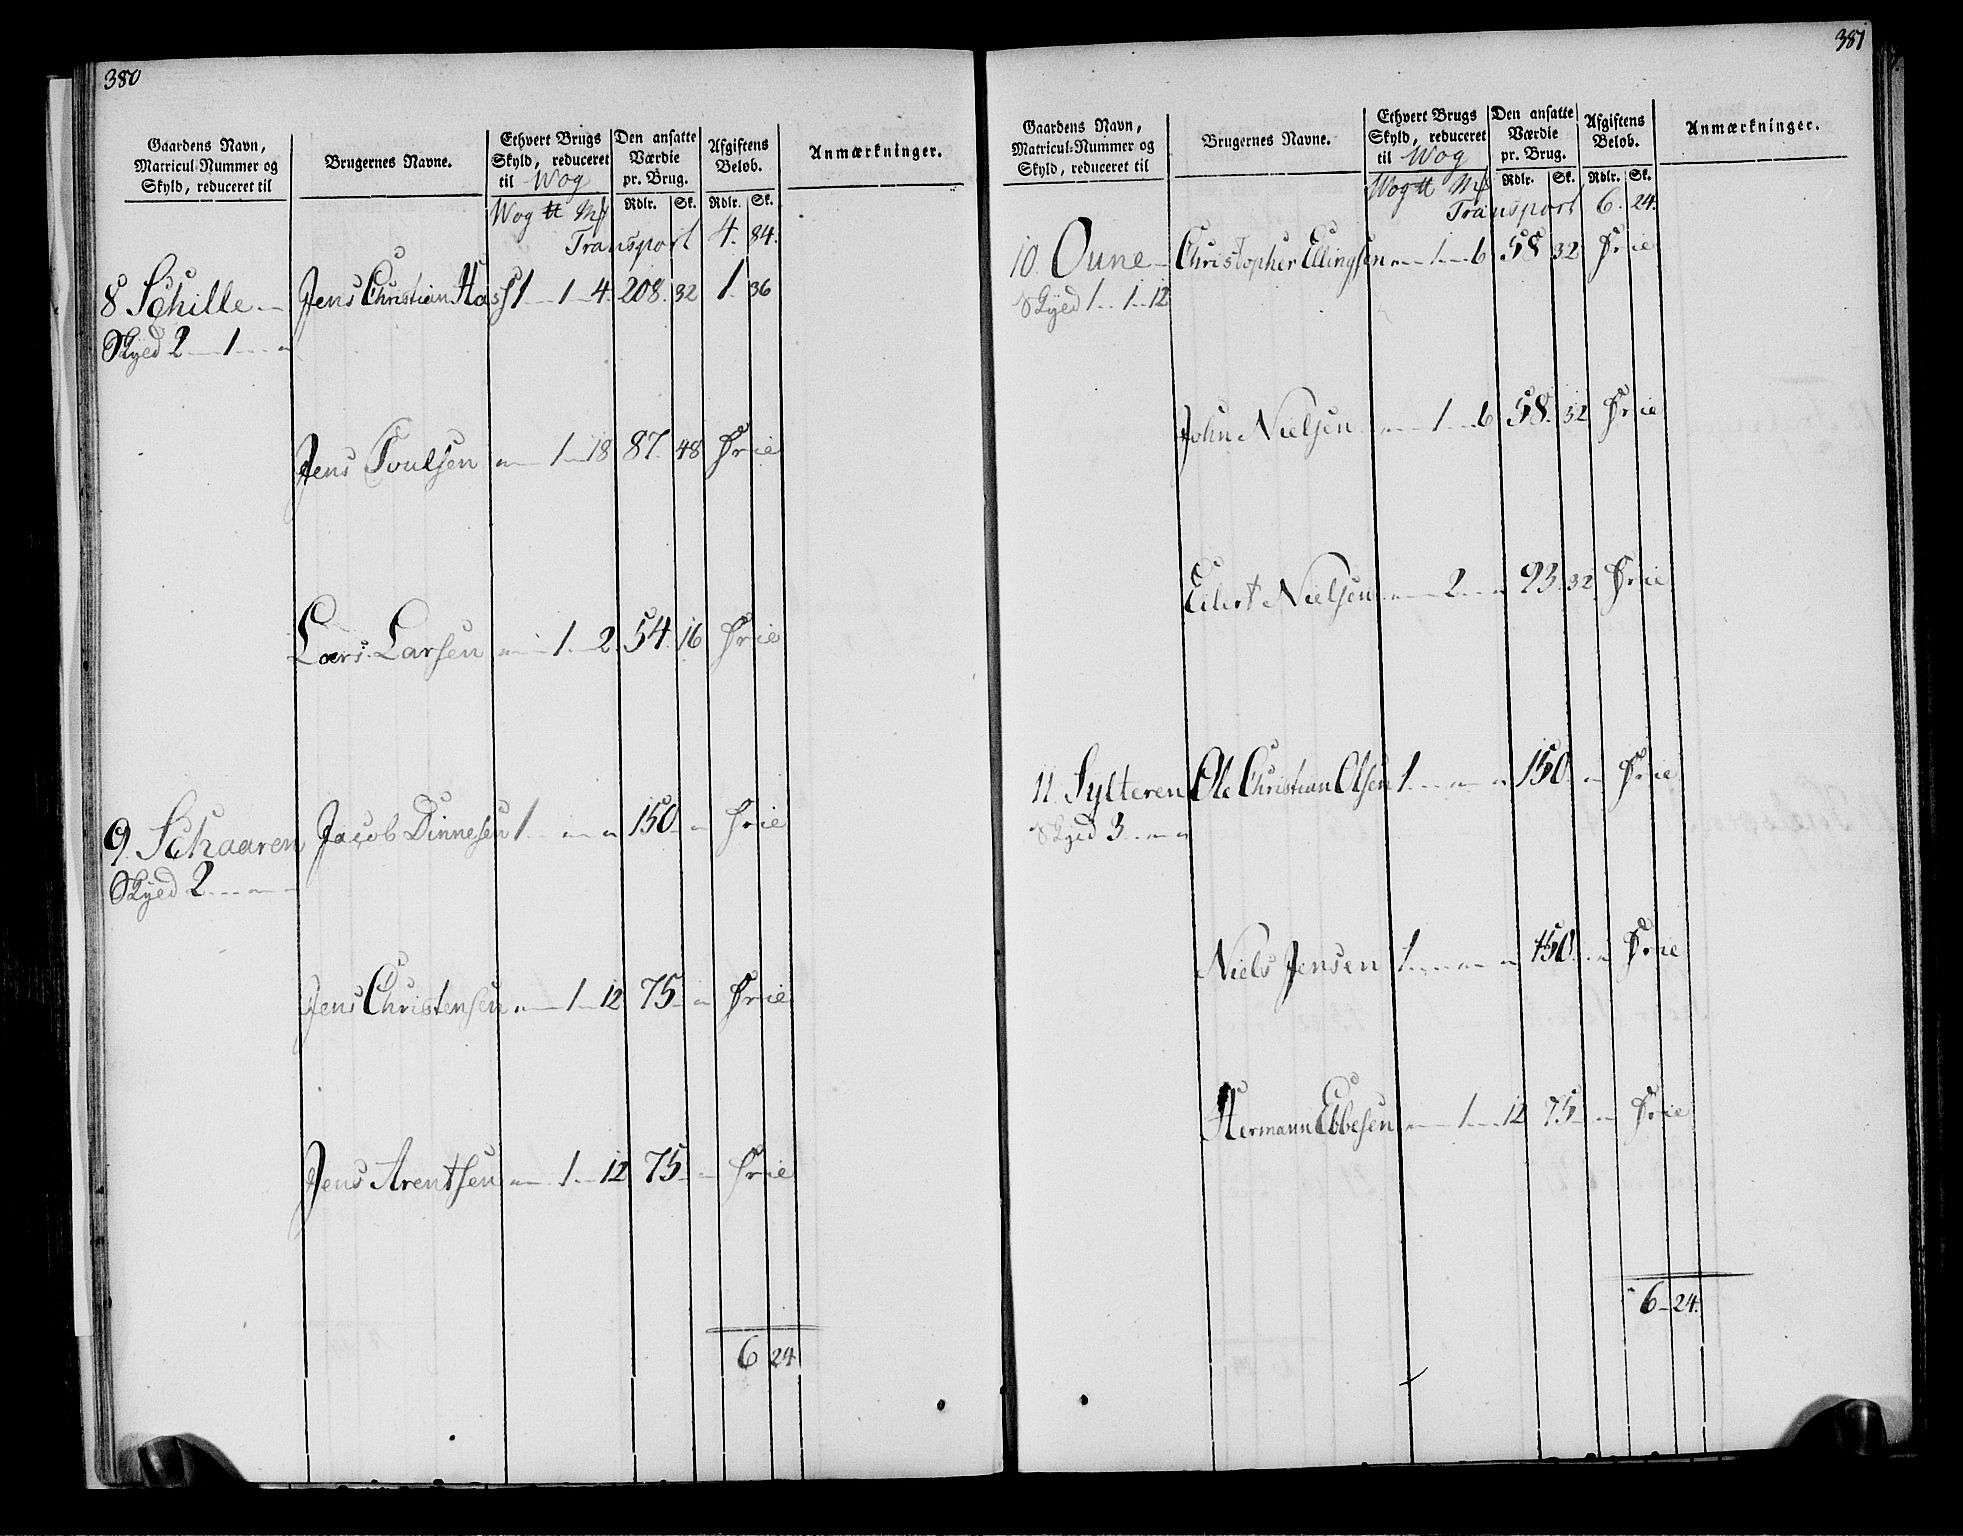 380
Gaardens Navn, Matricul-Nummer og Skyld, reduceret til
Brugernes Navne.
Ethvert Brugs Skyld, reduceret til Wog
Den ansatte Værdie pr. Brug.
Afgiftens Beløb.
Anmærkninger.
Wog ℔ Mk Rdlr. Sk. Rdlr. Sk.
Transport 4. 84.
8 Schille Jens Christian Hass 1 1 4 208. 32 1. 36
Skyld 2 1
Jens Poulsen 1 18 87. 48 Frie
Lars Larsen 1 2 54 16 Frie
9. Schaaren Jacob Dinnesen 1 150 Frie
Skyld 2
Jens Christensen 1 12 75 Frie
Jens Arentsen 1 12 75 Frie
6 24
381
Gaardens Navn, Matricul-Nummer og Skyld, reduceret til
Brugernes Navne.
Ethvert Brugs Skyld, reduceret til Wog
Den ansatte Værdie pr. Brug.
Afgiftens Beløb.
Anmærkninger.
Wog ℔ Mk Rdlr. Sk. Rdlr. Sk.
Transport 6. 24.
10. Oune Christopher Ellingsen 1 6 58 32 Frie
Skyld 1 1 12
John Nielsen 1 6 58. 32 Frie
Eilert Nielsen 2 93. 32 Frie
11. Sylteren Ole Christian Olsen 1 150. Frie
Skyld 3
Niels Jensen 1 150. Frie
Hermann Ebbesen 1 12 75 Frie
6 24.